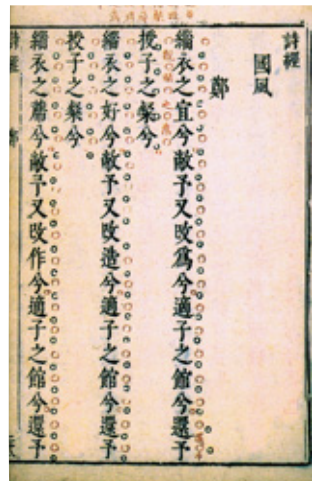 詩經
國風
鄭
緇衣之宜兮敝予又改爲兮適子之館兮還予
授子之粲兮
緇衣之好兮敝予又改造兮適子之館兮還予
授子之粲兮
緇衣之蓆兮敝予又改作兮適子之館兮還予
詩經